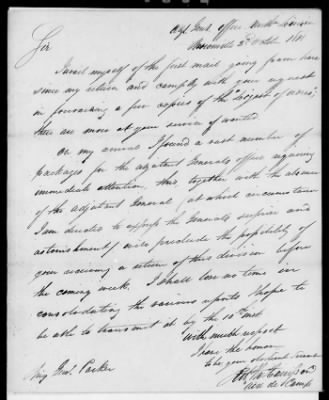 Adjt Genl. office Northn Division
Sir
I avail myself of the first mail going from here
since my return and comply with your request
in forwarding a few copies of the
there are more at your service if wanted.
On my arrival I found a vast number of
packages for the adjutant Generals office requiring
immediate attention, this, together with the absence
of the adjutant General (at which circumstance
I am directed to express the Generals surprise and
astonishment) will preclude the possibility of
your receiving a return of this division before
the coming week. I shall lose no time in
consolidating the various reports & hope to
be able to transmit it by the 10th inst
With much respect
I have the honor
to be your obedient servant
Aid de Camp
Brig Genl. Parker